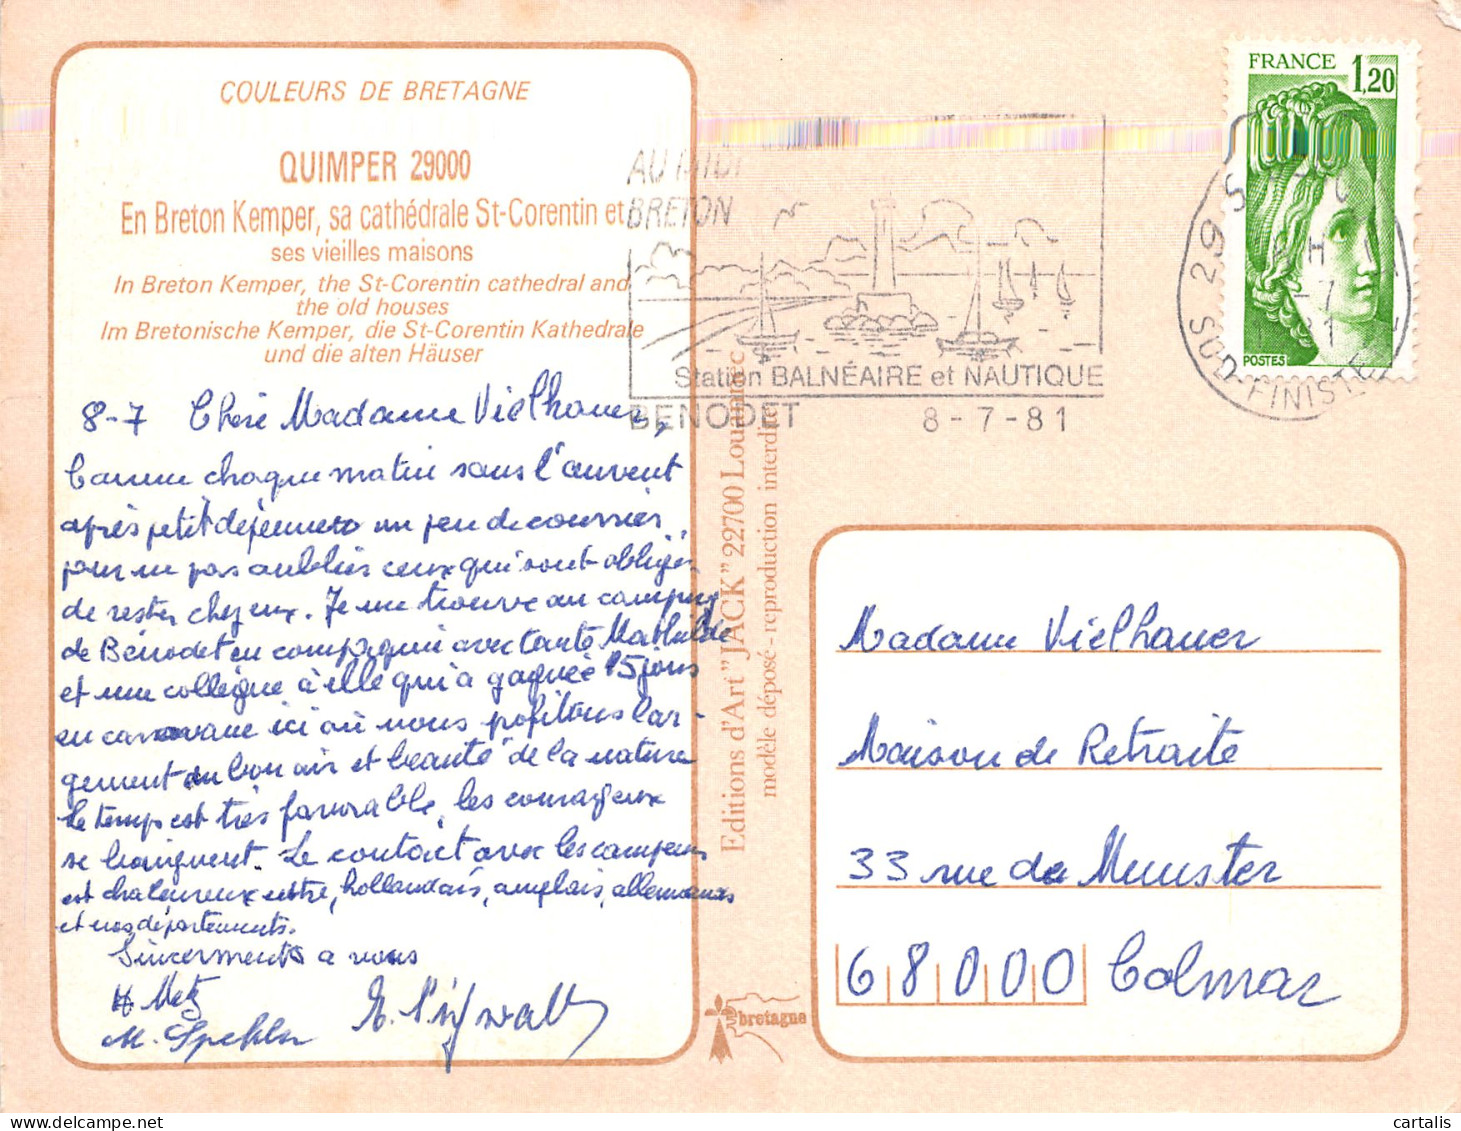 COULEURS DE BRETAGNE
QUIMPER 29000
En Breton Kemper, sa cathédrale St-Corentin et
ses vieilles maisons
In Breton Kemper, the St-Corentin cathedral and
the old houses
Im Bretonische Kemper, die St-Corentin Kathedrale
und die alten Häuser
8-7 Chère Madame Vielhauer,
Comme chaque matin sous l'auvent
après petit déjeuner un peu de courrier
pour ne pas oublier ceux qui sont obligés
de rester chez eux. Je me trouve au camping
de Bénodet en compagnie avec tante Mathilde
et une collègue à elle qui a gagnée 15 jours
en caravane ici où nous profitons lar-
gement du bon air et beauté de la nature
Le temps est très favorable, les courageux
se baignent. Le contact avec les campeurs
est chaleureux entre, hollandais, anglais, allemands
et nos départements.
Sincerments a vous
Metz
M.
Editions d'Art "JACK" 22700 Louannec
modèle déposé - reproduction interdite
bretagne
AU MIDI
BRETON
Station BALNÉAIRE et NAUTIQUE
BENODET 8-7-81
FRANCE 1,20
POSTES
29 S
SUD-FINISTE
Madame Vielhauer
Maison de Retraite
33 rue de Munster
68000 Colmar
cartalis